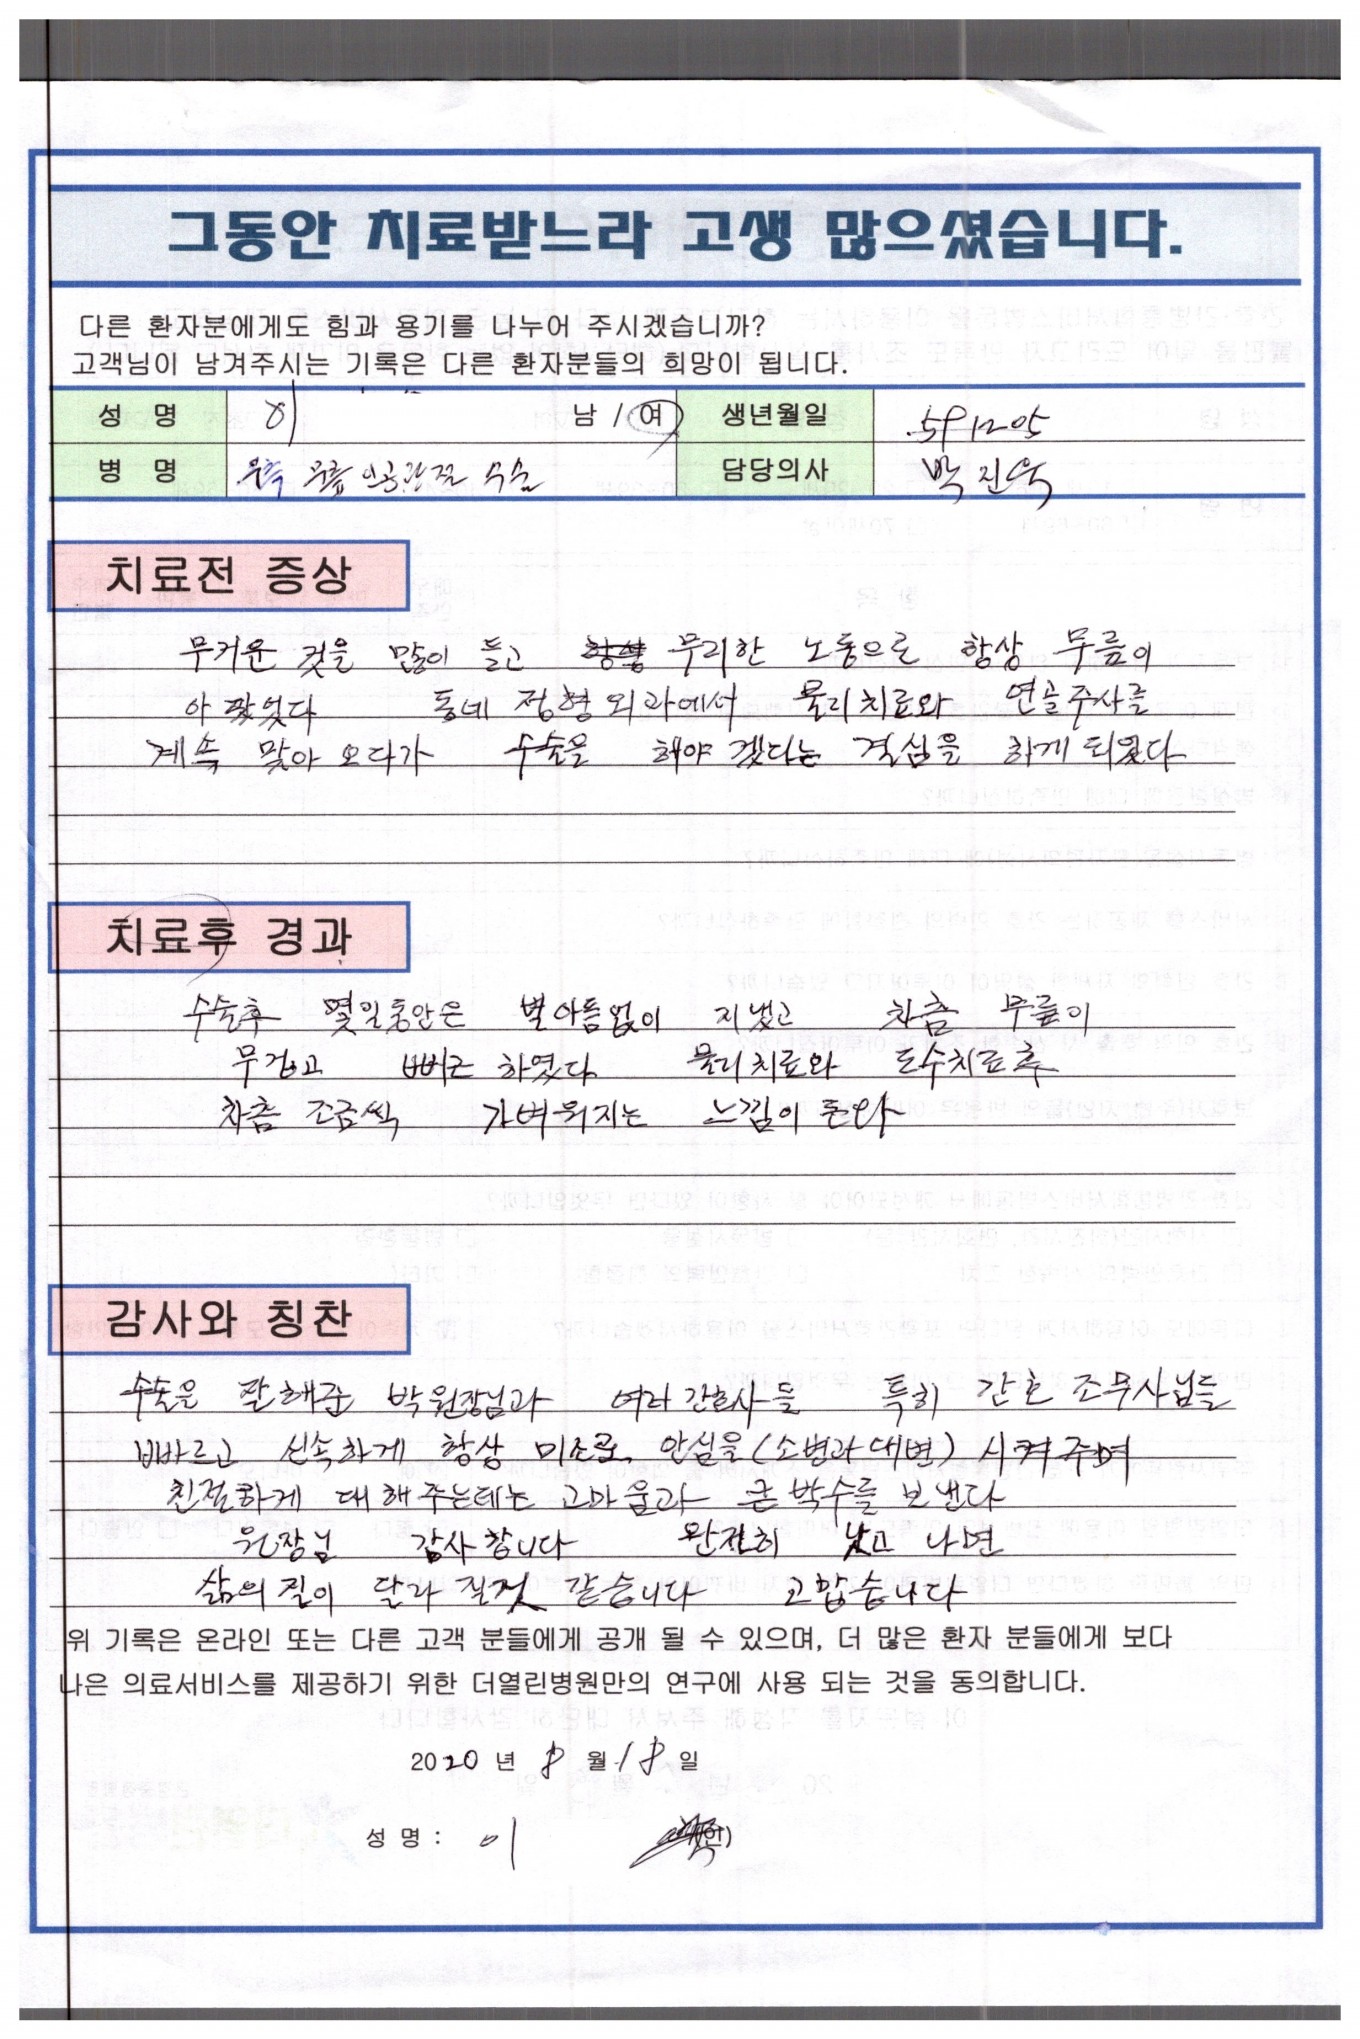 그동안 치료받느라 고생 많으셨습니다.
다른 환자분에게도 힘과 용기를 나누어 주시겠습니까?
고객님이 남겨주시는 기록은 다른 환자분들의 희망이 됩니다.
성 명 이 남 / 여 생년월일 59 12 05
병 명 무릎 인공관절 수술 담당의사 박진욱
치료전 증상
무거운 것을 많이 들고 무리한 노동으로 항상 무릎이
아팠었다 동네 정형외과에서 물리치료와 연골주사를
계속 맞아 오다가 수술을 해야 겠다는 결심을 하게 되었다
치료후 경과
수술후 몇일동안은 별아픔없이 지냈고 차츰 무릎이
무겁고 뻐근 하였다 물리치료와 도수치료후
차츰 조금씩 가벼워지는 느낌이 든다
감사와 칭찬
수술을 잘해준 박원장님과 여러 간호사들 특히 간호 조무사님들
빠르고 신속하게 항상 미소로 안심을 (소변과 대변) 시켜주며
친절하게 대해주는데는 고마움과 큰 박수를 보낸다
원장님 감사합니다 완전히 낫고 나면
삶의 질이 달라 질것 같습니다 고맙습니다
위 기록은 온라인 또는 다른 고객 분들에게 공개 될 수 있으며, 더 많은 환자 분들에게 보다
나은 의료서비스를 제공하기 위한 더열린병원만의 연구에 사용 되는 것을 동의합니다.
2020 년 8 월 18 일
성 명 : 이